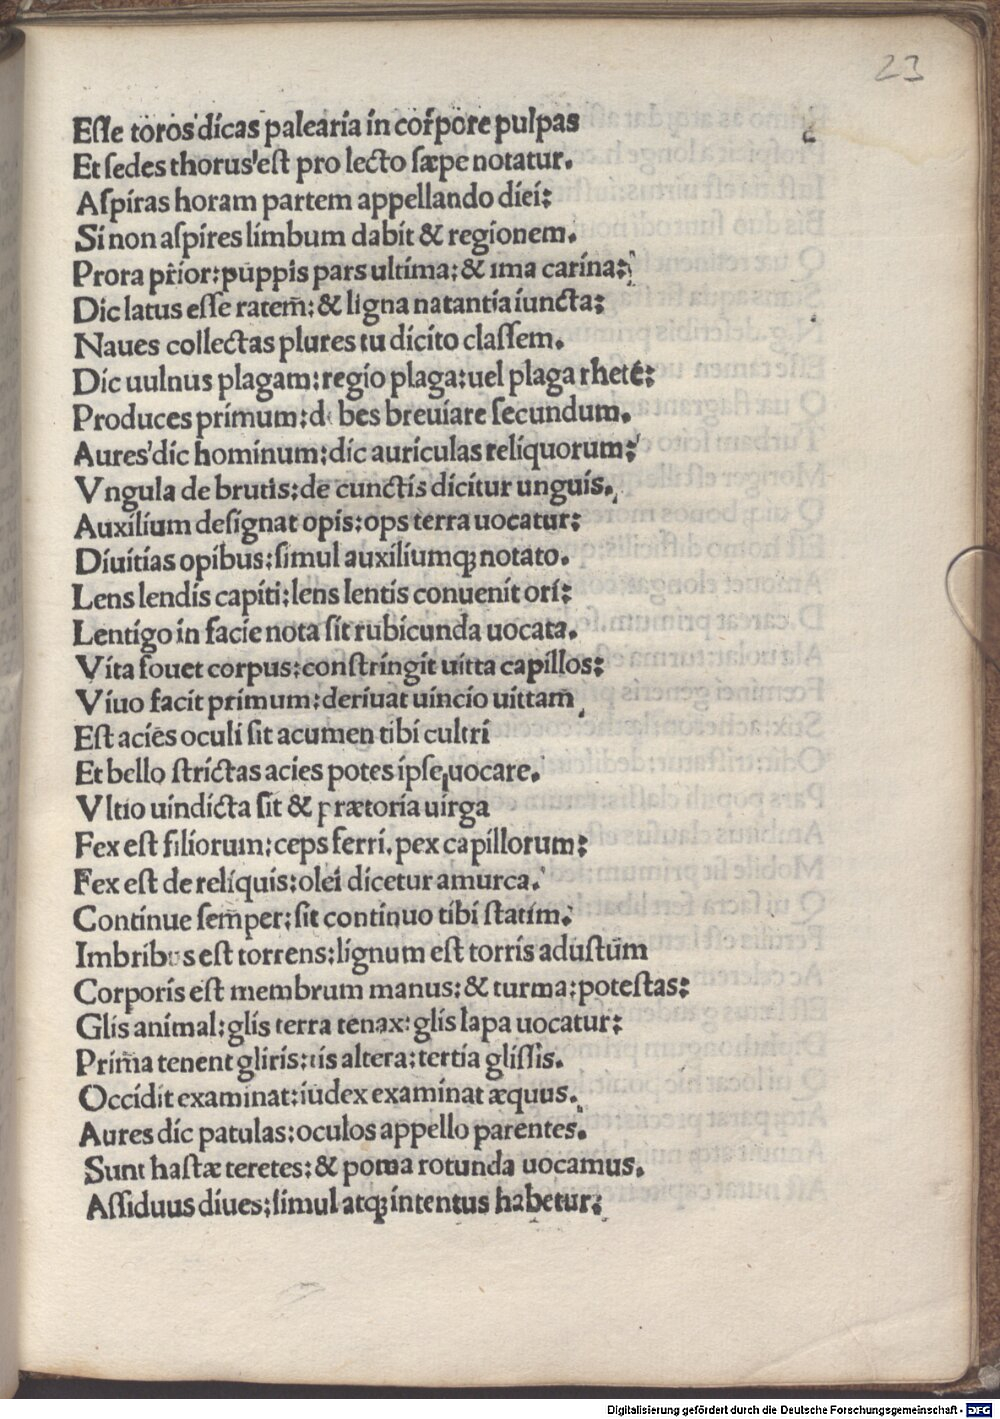 23
Eſſe toros dicas palearia in corpore pulpas
Et ſedes thorus eſt pro lecto ſæpe notatur.
Aſpiras horam partem appellando diei:
Si non aſpires limbum dabit & regionem.
Prora prior: puppis pars ultima: & ima carina:
Dic latus eſſe ratem: & ligna natantia iuncta:
Naues collectas plures tu dicito claſſem.
Dic uulnus plagam: regio plaga: uel plaga rhete:
Produces primum: d bes breuiare ſecundum.
Aures dic hominum: dic auriculas reliquorum:
Vngula de brutis: de cunctis dicitur unguis.
Auxilium deſignat opis: ops terra uocatur:
Diuitias opibus: ſimul auxiliumqꝫ notato.
Lens lendis capiti: lens lentis conuenit ori:
Lentigo in facie nota ſit rubicunda uocata.
Vita fouet corpus: conſtringit uitta capillos:
Viuo facit primum: deriuat uincio uittam
Eſt acies oculi ſit acumen tibi cultri
Et bello ſtrictas acies potes ipſe uocare.
Vltio uindicta ſit & prætoria uirga
Fex eſt filiorum: ceps ferri. pex capillorum:
Fex eſt de reliquis: olei dicetur amurca.
Continue ſemper: ſit continuo tibi ſtatim.
Imbribus eſt torrens: lignum eſt torris aduſtum
Corporis eſt membrum manus: & turma: poteſtas:
Glis animal: glis terra tenax: glis lapa uocatur:
Prima tenent gliris: tis altera: tertia gliſſis.
Occidit examinat: iudex examinat æquus.
Aures dic patulas: oculos appello parentes.
Sunt haſtæ teretes: & poma rotunda uocamus.
Aſſiduus diues: ſimul atqꝫ intentus habetur:
Digitalisierung gefördert durch die Deutsche Forschungsgemeinschaft - DFG